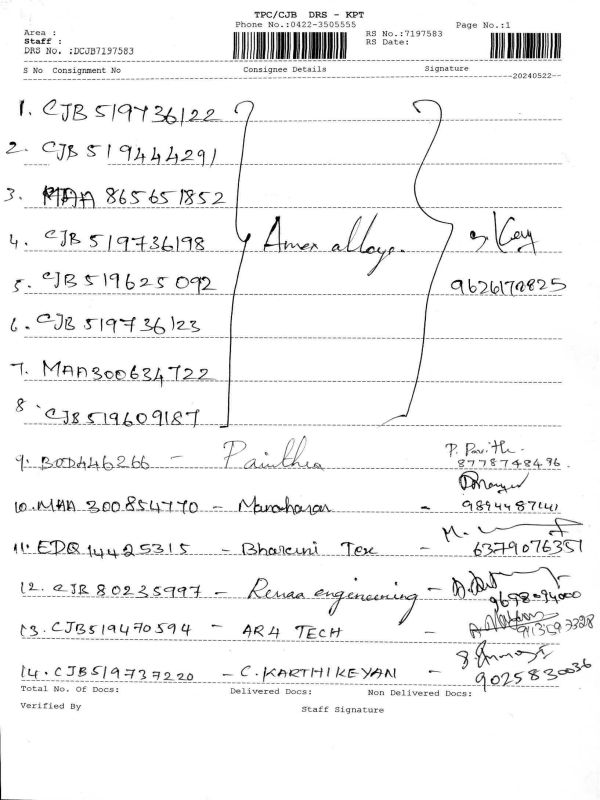 TPC/CJB DRS - KPT
Phone No.:0422-3505555 Page No.:1
Area :
Staff : RS No.:7197583
DRS No. :DCJB7197583 RS Date:
S No Consignment No Consignee Details Signature
20240522
1. CJB 519736122
2. CJB 519444291
3. MAA 865651852
4. CJB 519736198 Amex alloys.
5. CJB 519625092 9626172825
6. CJB 519736123
7. MAA300634722
8. CJB519609187
P. Pavith.
9. BOD446266 - Pavithra 8778748496.
10. MAA 300854770 - Manoharan - 9894487141
11. EDQ 14425315 - Bharani Tex - 6379076351
12. CJB 80235997 - Renaa engineering - 9698094000
13. CJB519470594 - AR4 TECH -
14. CJB519737220 - C. KARTHIKEYAN - 9025830036
Total No. Of Docs: Delivered Docs: Non Delivered Docs:
Verified By Staff Signature